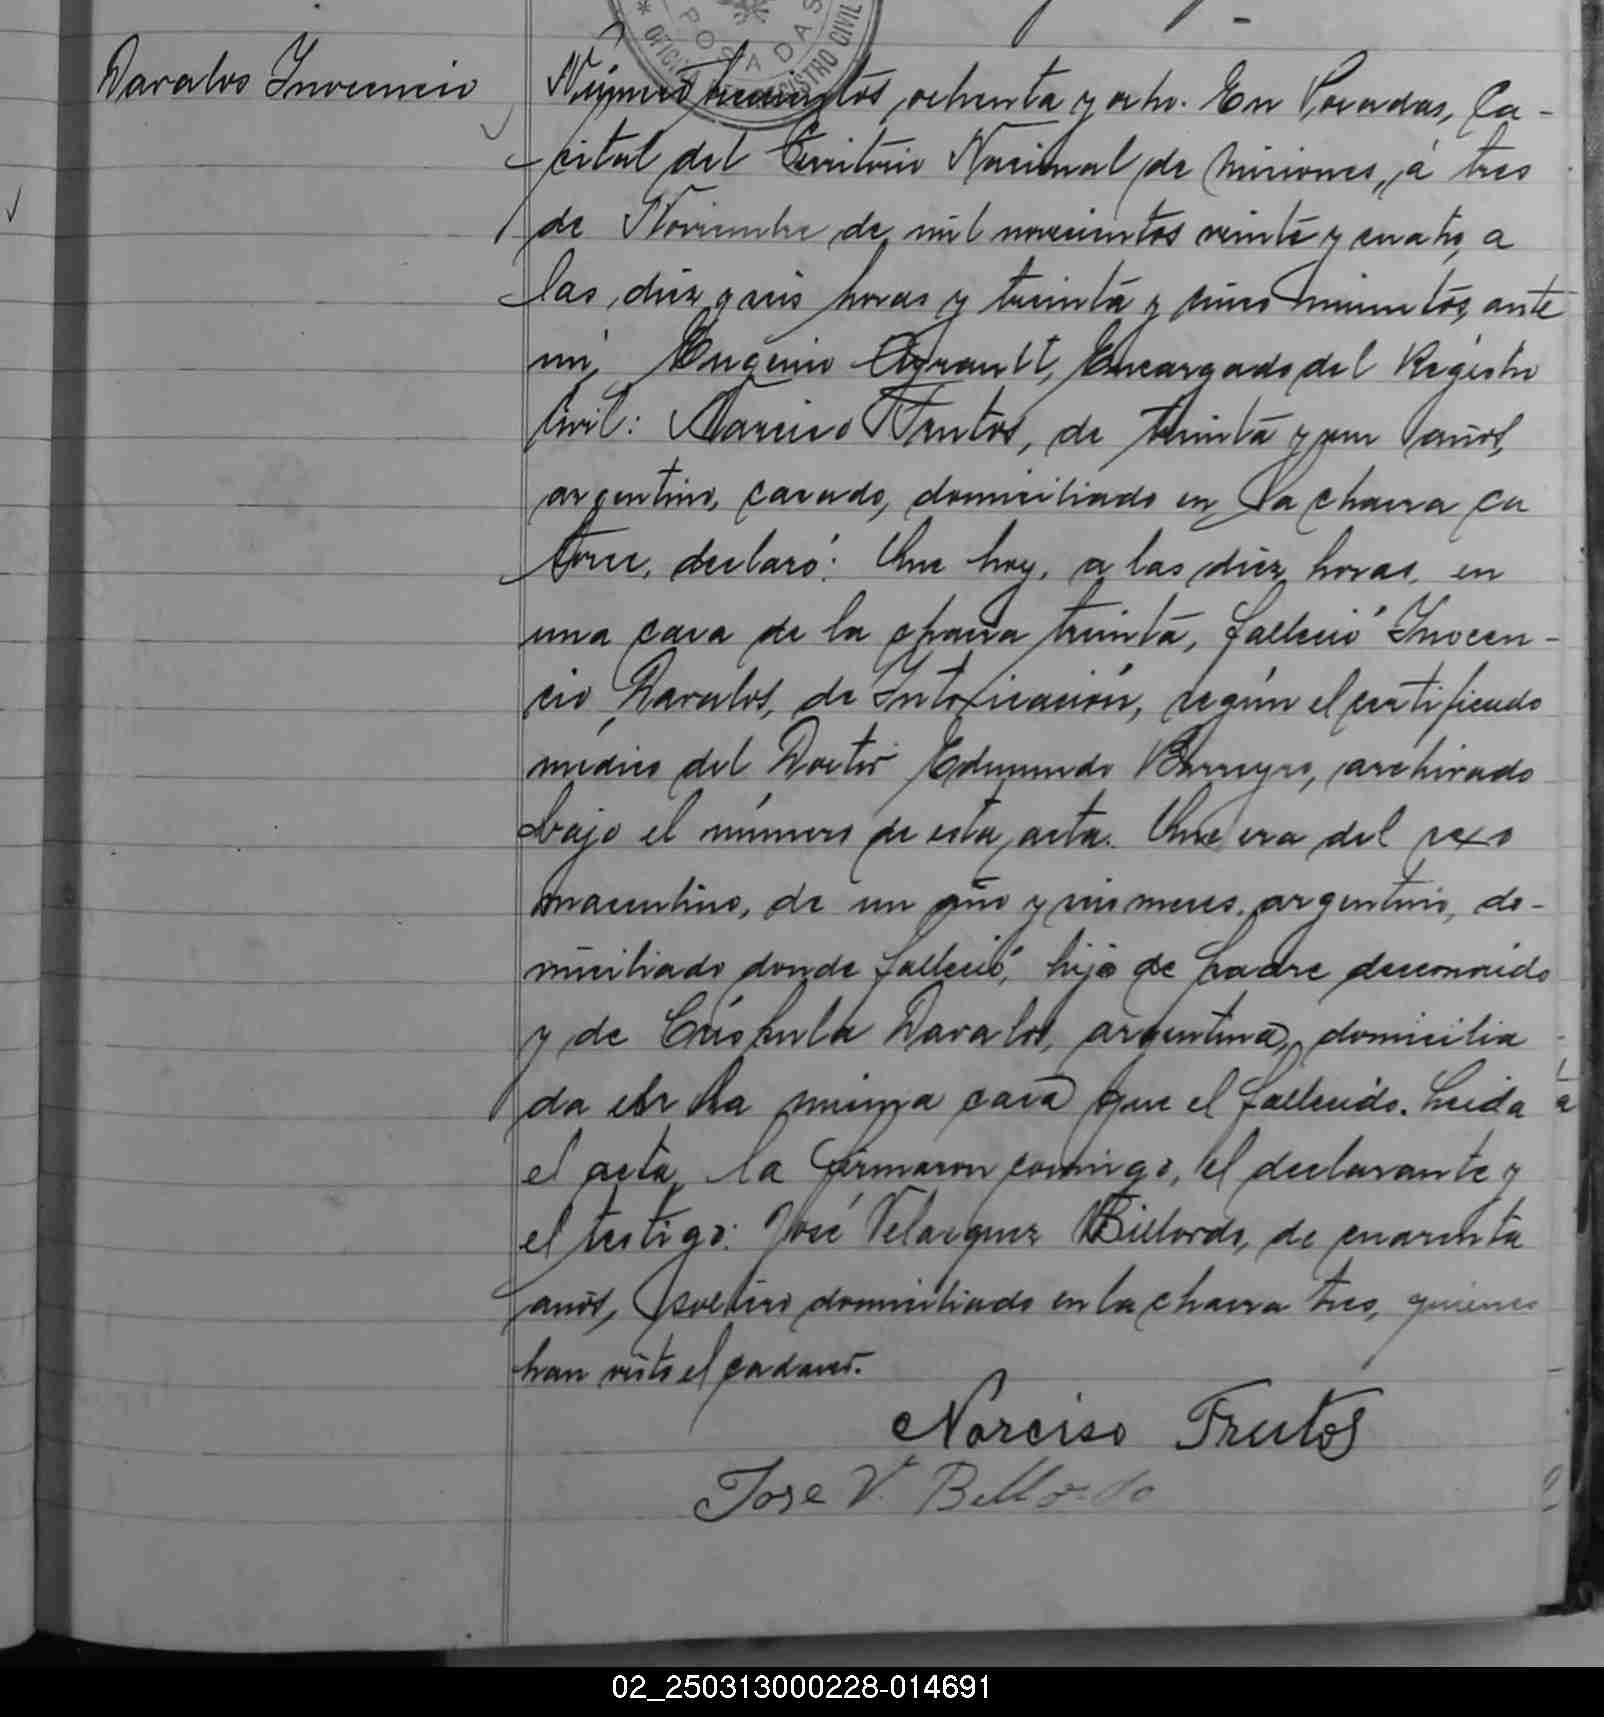 Davalos Inocencio
POSADAS
REGISTRO CIVIL
Número trescientos ochenta y ocho. En Posadas, Ca-
pital del Territorio Nacional de Misiones, á tres
de Noviembre de mil novecientos veinte y cuatro, a
las diez y seis horas y treinta y cinco minutos, ante
mi, Eugenio Ayrault, Encargado del Registro
Civil: Narciso Frutos, de treinta y un años,
argentino, casado, domiciliado en la chacra ca
torce, declaró: Que hoy, a las diez horas, en
una casa de la chacra treinta, falleció Inocen-
cio Davalos, de Intoxicación, según el certificado
médico del Doctor Edmundo Barreyro, archivado
bajo el número de esta acta. Que era del sexo
masculino, de un año y seis meses, argentino, do-
miciliado donde falleció, hijo de padre desconocido
y de Críspula Davalos, argentina, domicilia
da en la misma casa que el fallecido. Leida
el acta, la firmaron conmigo, el declarante y
el testigo: José Velazquez Billordo, de cuarenta
años, soltero domiciliado en la chacra tres, quienes
han visto el cadaver.
Narciso Frutos
Jose V. Bellordo
02_250313000228-014691